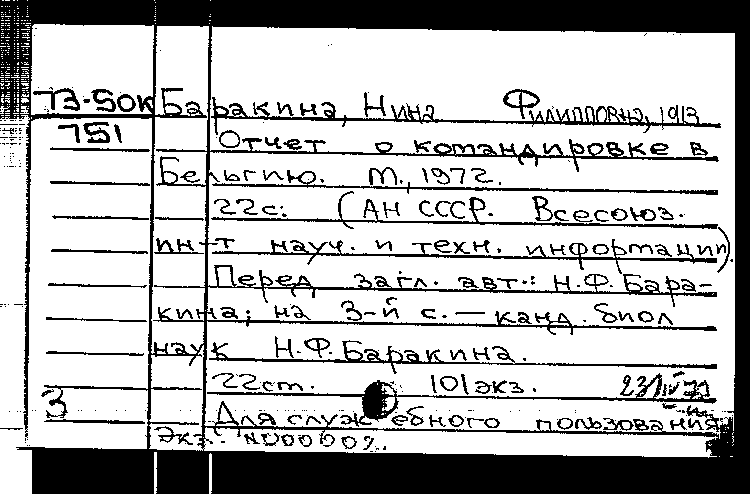 73-50к Баракина, Нина Филипповна, 1913
751 Отчет о командировке в
Бельгию. М., 1972.
22с. (АН СССР. Всесоюз.
ин-т науч. и техн. информации).
Перед загл. авт.: Н.Ф. Бара-
кина; на 3-й с. — канд. биол
наук Н.Ф. Баракина.
22ст. 101экз.
3 Для служебного пользования
Экз.